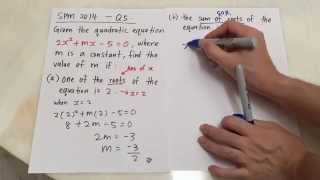 SPM 2014 - Q5
Given the quadratic equation
2x² + mx - 5 = 0, where
m is a constant, find the
value of m if :
value of x
(a) One of the roots of the
equation is 2 → x = 2
when x = 2
2(2)² + m(2) - 5 = 0
8 + 2m - 5 = 0
2m = -3
m = -3/2
SOR
(b) the sum of roots of the
equation